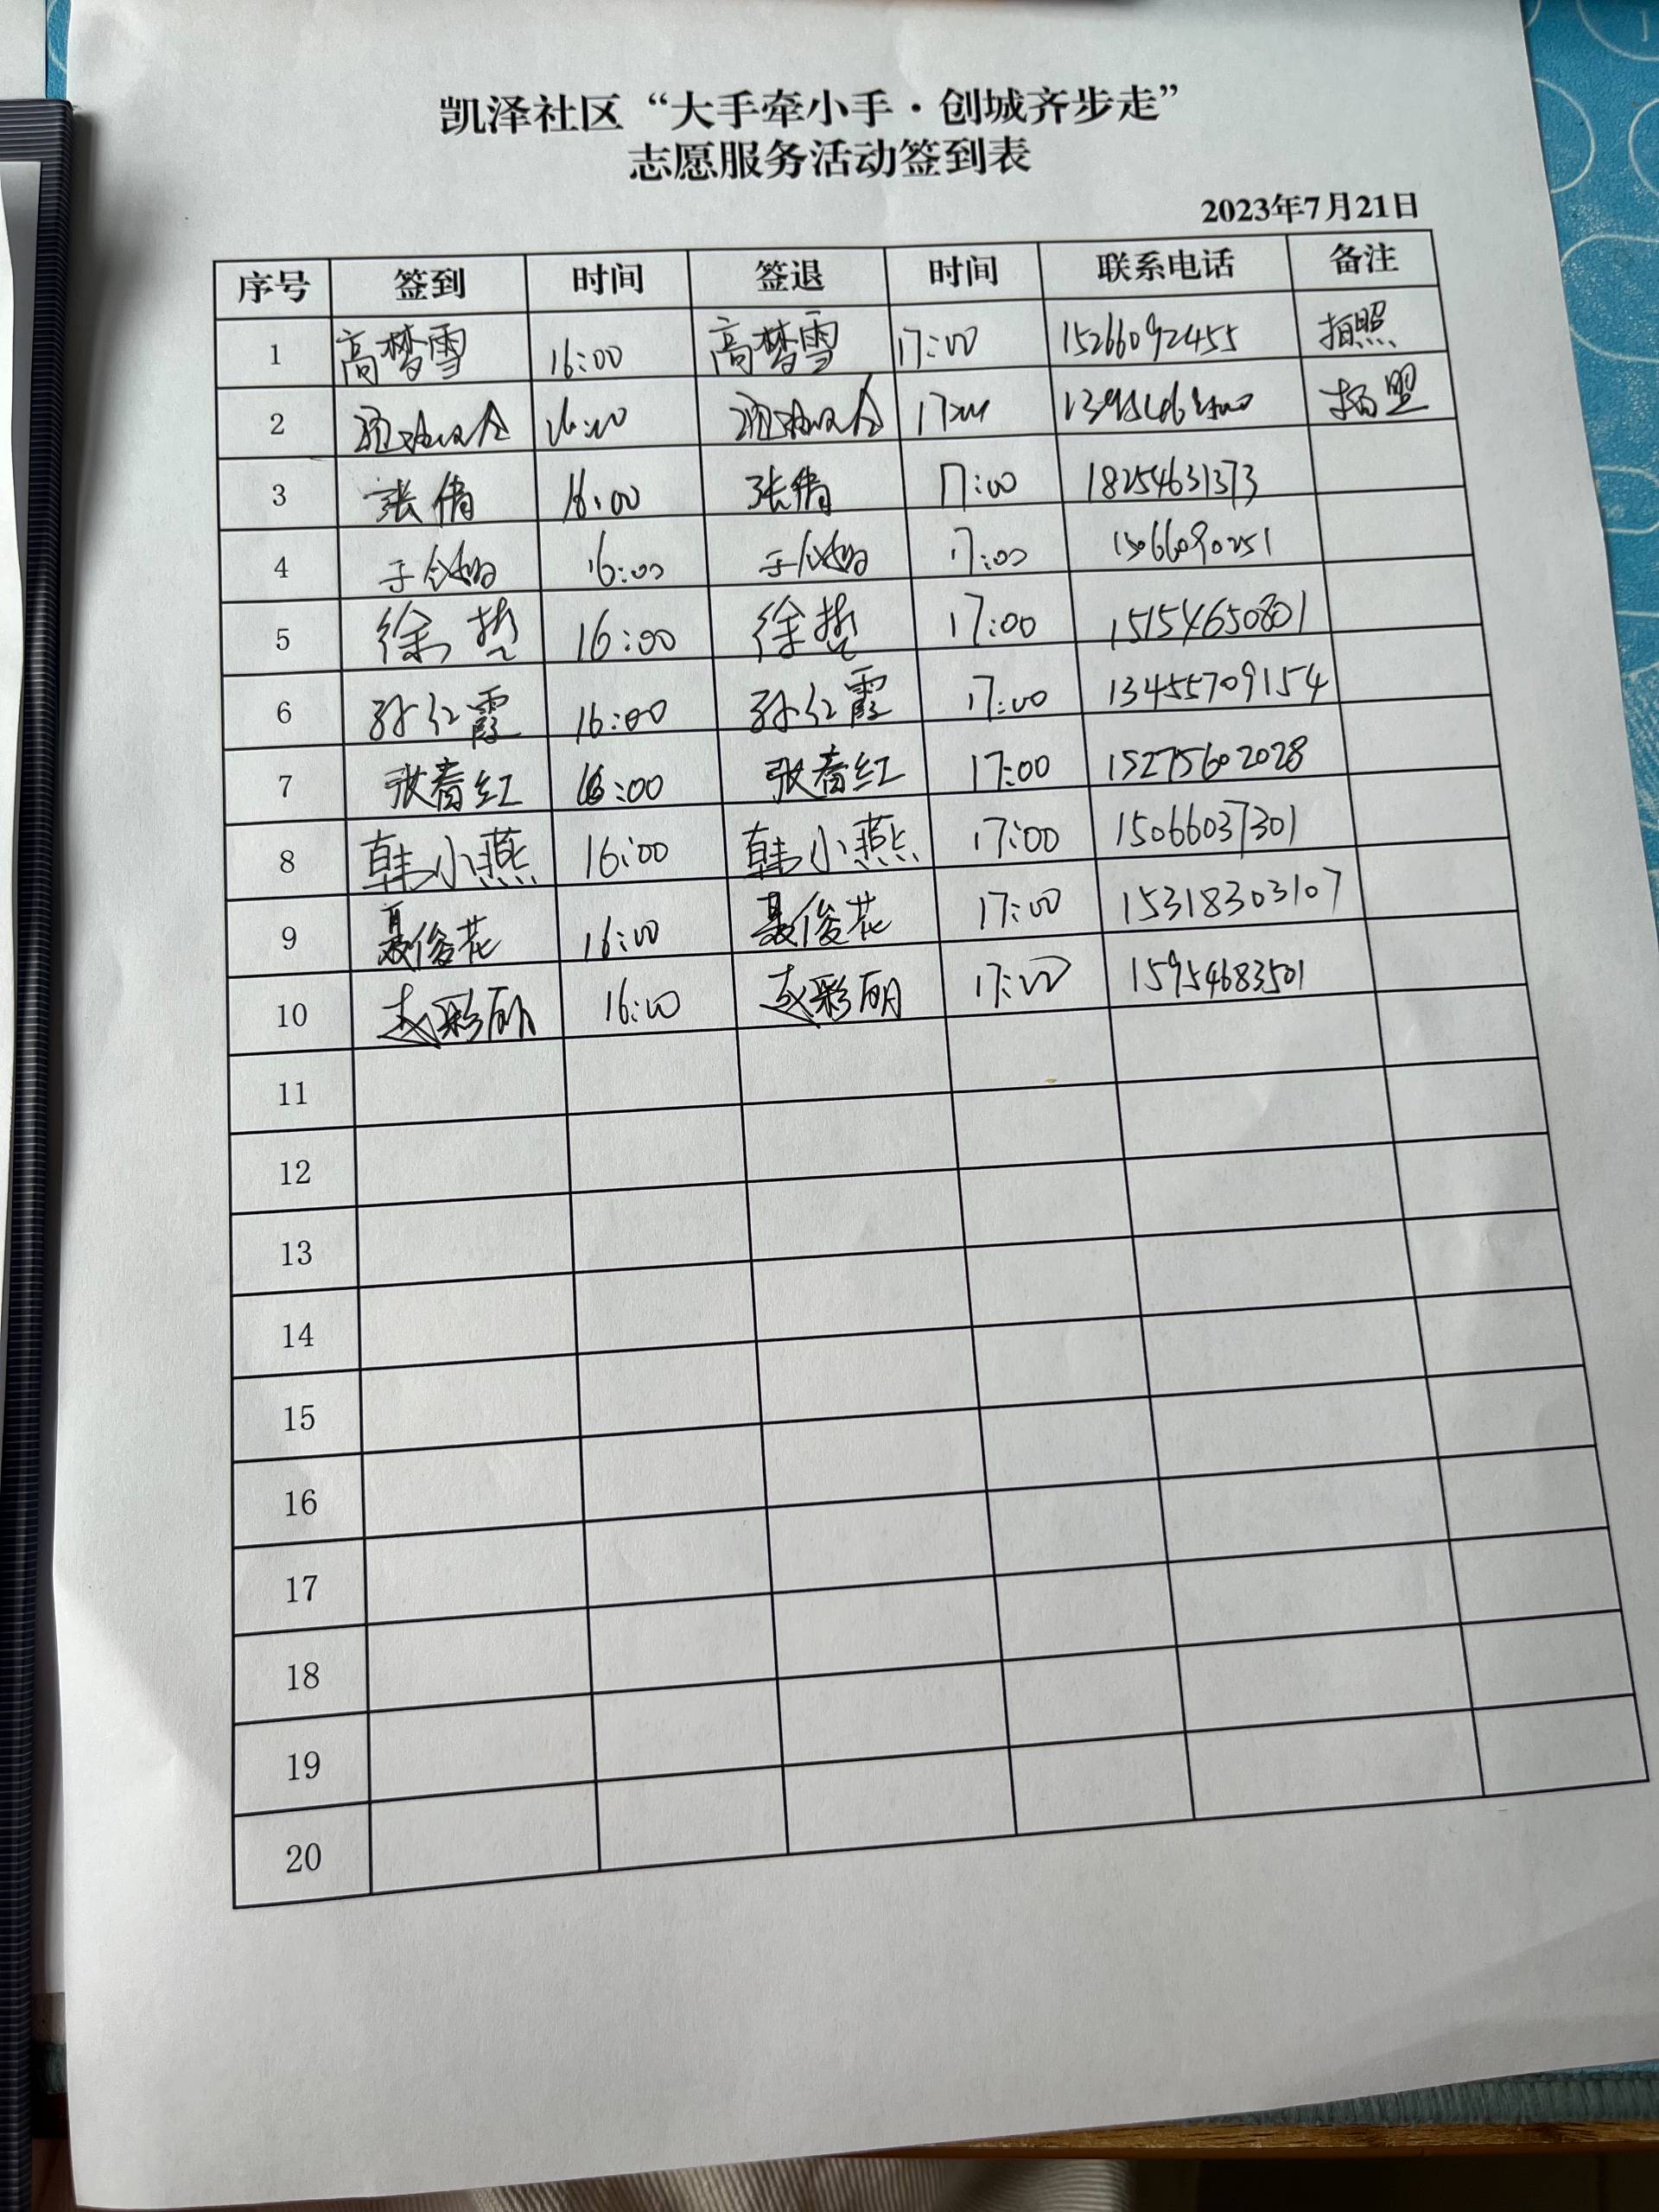 凯泽社区“大手牵小手·创城齐步走”
志愿服务活动签到表
2023年7月21日
序号 签到 时间 签退 时间 联系电话 备注
1 高梦雪 16:00 高梦雪 17:00 15266092455 拍照
2 16:00 17:00
3 张倩 16:00 张倩 17:00 18254631373
4 于 16:00 于 17:00 15066090251
5 徐哲 16:00 徐哲 17:00 15154650801
6 孙红霞 16:00 孙红霞 17:00 13455709154
7 张春红 16:00 张春红 17:00 15275602028
8 韩小燕 16:00 韩小燕 17:00 15066037301
9 聂俊花 16:00 聂俊花 17:00 15318303107
10 赵彩丽 16:00 赵彩丽 17:00 15954683501
11
12
13
14
15
16
17
18
19
20